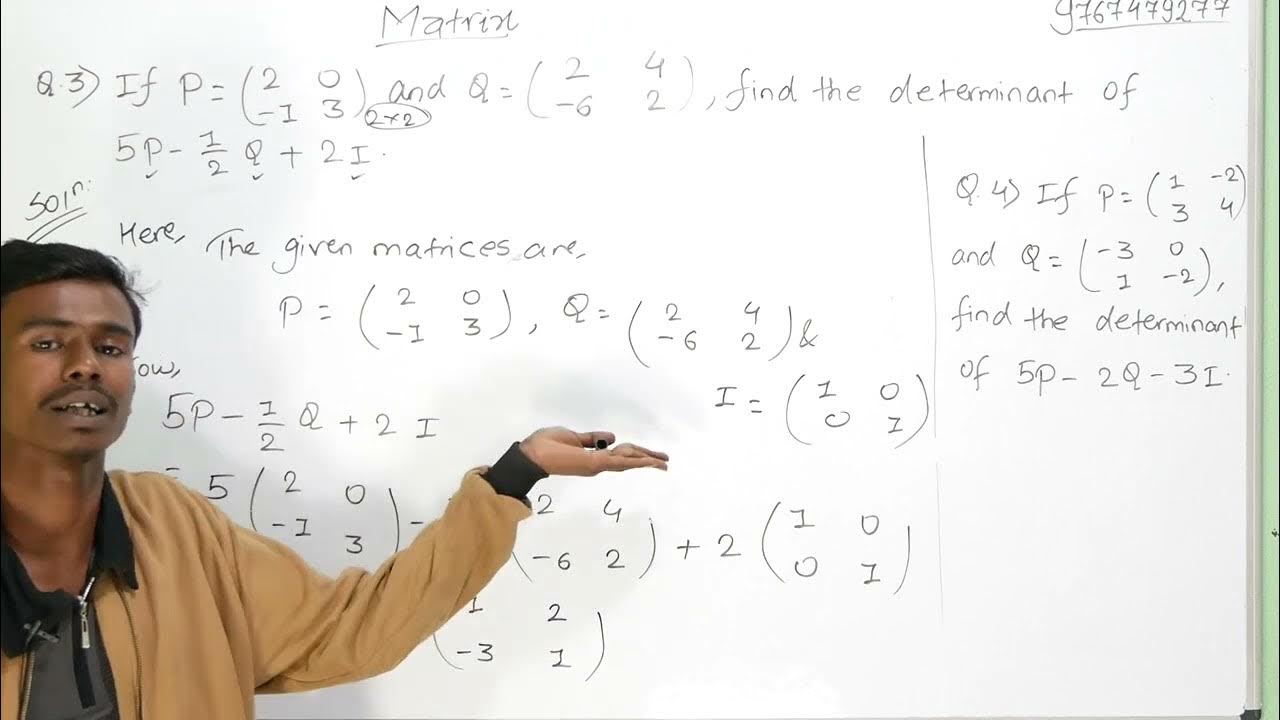 Matrix
9767479277
Q.3) If P = (2 0 -1 3) 2×2 and Q = (2 4 -6 2), find the determinant of
5P - 1/2 Q + 2I.
Soln:
Here, The given matrices are,
P = (2 0 -1 3), Q = (2 4 -6 2) &
I = (1 0 0 1)
5P - 1/2 Q + 2 I
5 (2 0 -1 3) - 2 4 -6 2) + 2 (1 0 0 1)
(1 2 -3 1)
Q.4) If P = (1 -2 3 4)
and Q = (-3 0 1 -2),
find the determinant
of 5P - 2Q - 3I.